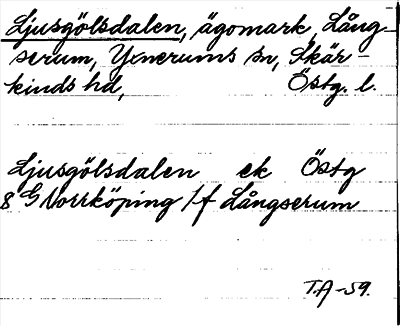 Ljusgölsdalen, ägomark, Lång-
serum, Yxnerums sn, Skär-
kinds hd, Östg. l.
Ljusgölsdalen ek Östg
8 G Norrköping 1/f Långserum
T.A-59.